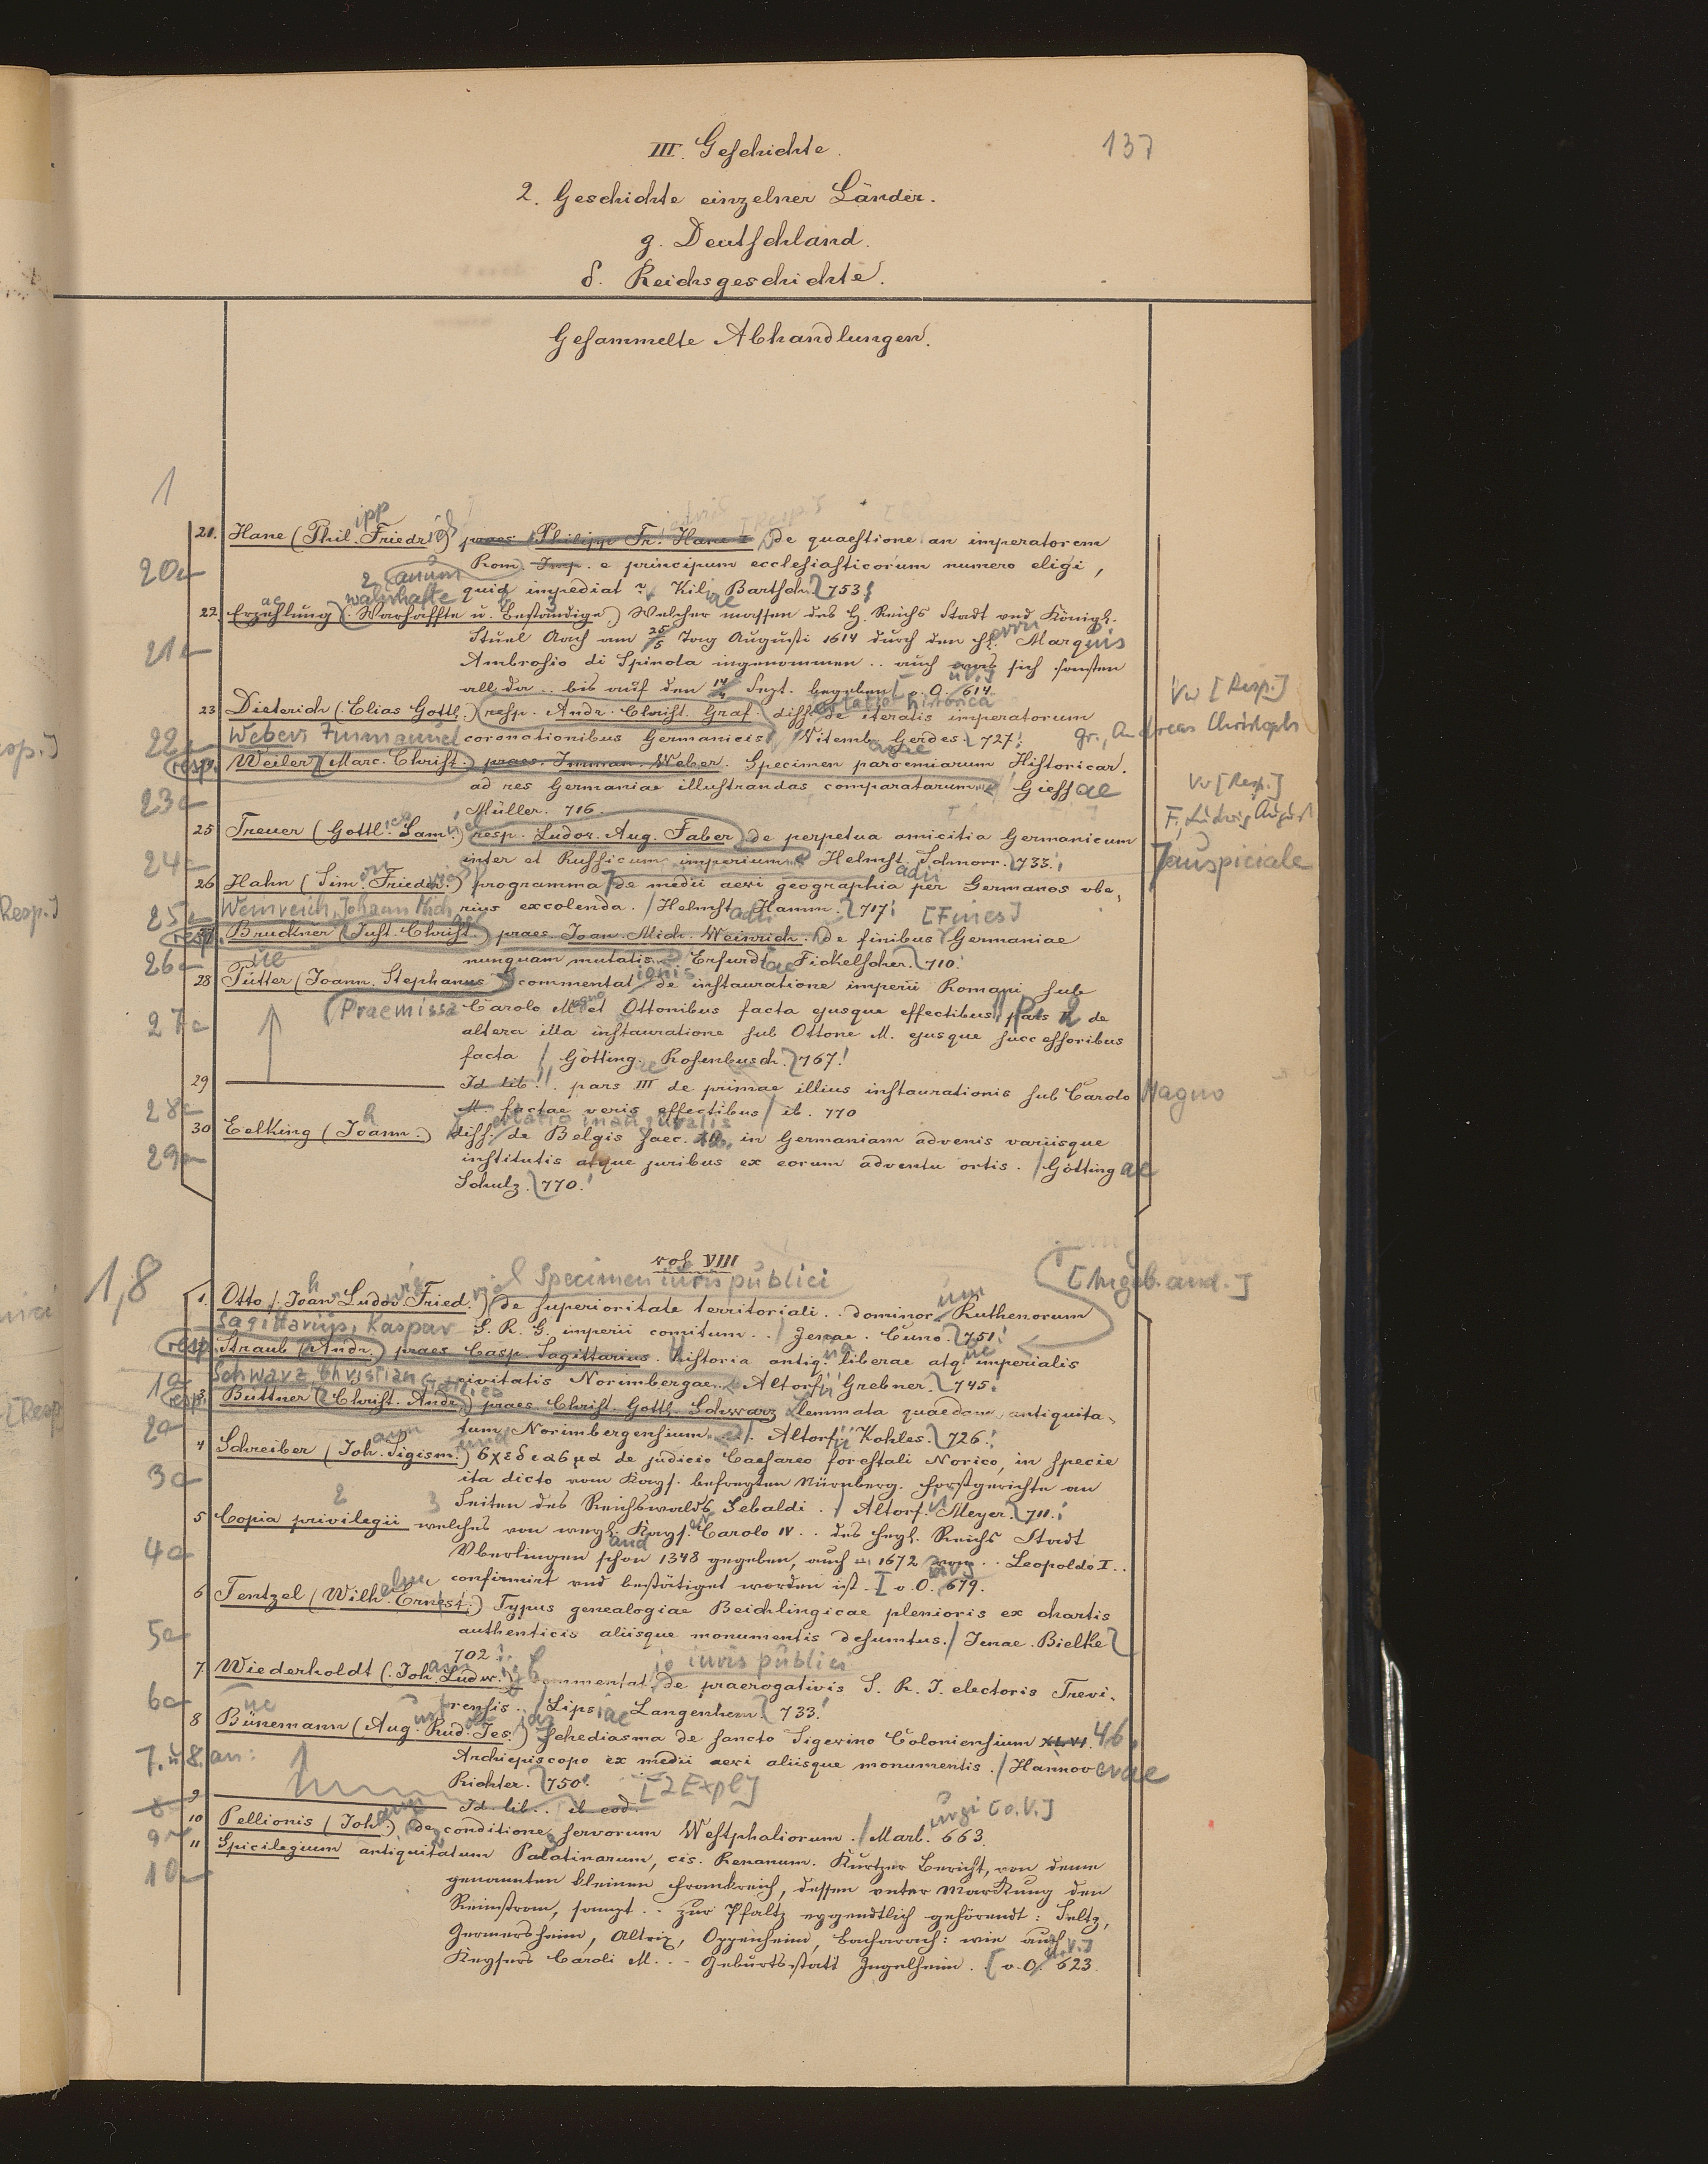 III. Geschichte.
137
2. Geschichte einzelner Länder.
g. Deutschland.
δ. Reichsgeschichte.
Gesammelte Abhandlungen.
1
21. Hane (Philipp Friedrich) praes. Philipp Fr. Hane de quaestione an imperatorem
20a Rom. Imp. e principum ecclesiasticorum numero eligi,
quid impediat Kil. Bartsch. 753.
22. Erzaehlung (Warhaffte u. Beständige) Welcher massen des H. Reichs Stadt vnd Königl.
21a Stuel Aach am 25/5 Tag Augusti 1614 durch den H. Marquis
Ambrosio di Spinola ingenommen .. auch was sich sonsten
all da .. bis auf den 14/4 Sept. begeben. o. O. 614.
Vw [Resp.]
23 Dieterich (Elias Gottl.) resp. Andr. Christ. Graf. diss. de iteratis imperatorum
22a Weber, Immanuel coronationibus Germanicis Vitemb. Gerdes. 727. Gr., Andreas Christoph
resp. Weiler (Marc. Christ.) praes. Imman. Weber. Specimen paroemiarum Historicar.
Vw [Resp.]
23a ad res Germaniae illustrandas comparatarum Giessae
Müller. 716.
F., Ludwig August
25 Treuer (Gottl. Sam.) resp. Ludov. Aug. Faber de perpetua amicitia Germanicum
24a inter et Russicum imperium Helmst. Schnorr. 733.
auspiciale
26 Hahn (Sim. Friedr.) programma de medii aevi geographia per Germanos ube-
25a Weinreich, Johann Mich. rius excolenda. Helmst. Hamm. 717. [Fines]
27 resp. Bruckner (Just. Christ.) praes. Joan. Mich. Weinrich. de finibus Germaniae
26a nunquam mutatis Erfurdt Fickelscher. 710.
28 Pütter (Joann. Stephanus) commentationis de instauratione imperii Romani sub
27a (Praemissa Carolo Magno et Ottonibus facta ejusque effectibus, pars II de
altera illa instauratione sub Ottone M. ejusque successoribus
facta / Götting. Rosenbusch. 767.
29 Id. lib. pars III de primae illius instaurationis sub Carolo Magno
28a M. factae veris effectibus / ib. 770
30 Eelking (Joann.) diss. inauguralis de Belgis saec. in Germaniam advenis variisque
29a institutis atque juribus ex eorum adventu ortis. / Göttingae
Schulz. 770.
vol VIII
1,8
Specimen iuris publici
[Angeb. and.]
1. Otto (Joan. Ludov. Fried.) de superioritate territoriali .. dominorum Ruthenorum
Sagittarius, Kaspar S. R. G. imperii comitum .. / Jenae. Cuno. 751.
resp. Straub (Andr.) praes. Casp. Sagittarius. historia antiq. liberae atq. imperialis
1a Schwarz, Christian Gottlieb civitatis Norimbergae. Altorf. Grebner. 745.
resp. 3 Büttner (Christ. Andr.) praes. Christ. Gottl. Schwarz lemmata quaedam antiquita-
2a tum Norimbergensium. Altorf. Kohles. 726.
4 Schreiber (Joh. Sigism.) σχεδιασμα de judicio Caesareo forestali Norico, in specie
3a ita dicto vom Kays. befreyten Nürnberg. Forstgerichte an
Seiten des Reichswalds Sebaldi. / Altorf. Meyer. 711.
5 Copia privilegii welches von weyl. Kays. Carolo IV .. des heyl. Reichs Stadt
4a Vberlingen schon 1348 gegeben, auch 1672 von .. Leopoldo I ..
confirmirt vnd bestätiget worden ist. [o. O. 679.
6 Tentzel (Wilh. Ernest.) Typus genealogiae Beichlingicae plenioris ex chartis
5a authenticis aliisque monumentis desumtus. / Jenae. Bielke
702.
iuris publici
7. Wiederholdt (Joh. Ludw.) Commentat. de praerogativis S. R. I. electoris Trevi-
6a rensis. / Lipsiae Langenhem. 733.
8 Bünemann (Aug. Rud. Jes.) Schediasma de sancto Sigewino Coloniensium XLVI 46.
7. u. 8. an: Archiepiscopo ex medii aevi aliisque monumentis. / Hannoverae
Richter. 750. [2 Expl]
9 Id. lib. ib. eod.
8a
10 Pellionis (Joh.) de conditione servorum Westphaliorum. / Marb. 663. [o. V.]
9a
11 Spicilegium antiquitatum Palatinarum, cis. Renanum. Kurtzer Bericht, von deme
10a genannten kleinen Franckreich, dessen vnter Marckung den
Reinstrom, sampt .. zur Pfaltz eygendtlich gehörendt: Seltz,
Germersheim, Altrip, Oppenheim, Bacharach: wie auch
Keysers Caroli M. .. Geburts statt Ingelheim. [o. O. 623.